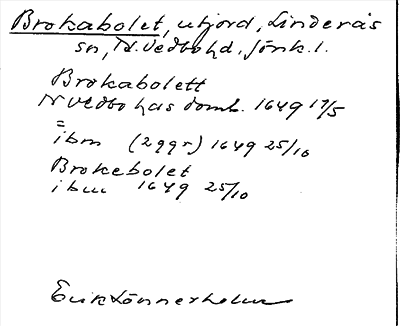 Brokabolet, utjord, Linderås
sn, N. Vedbo hd, Jönk. l.
Brokabolett
N Vedbo häs domb. 1649 17/5
=
ibm (299r) 1649 25/10
Brokebolet
ibm 1649 25/10
Erik Lönnerholm